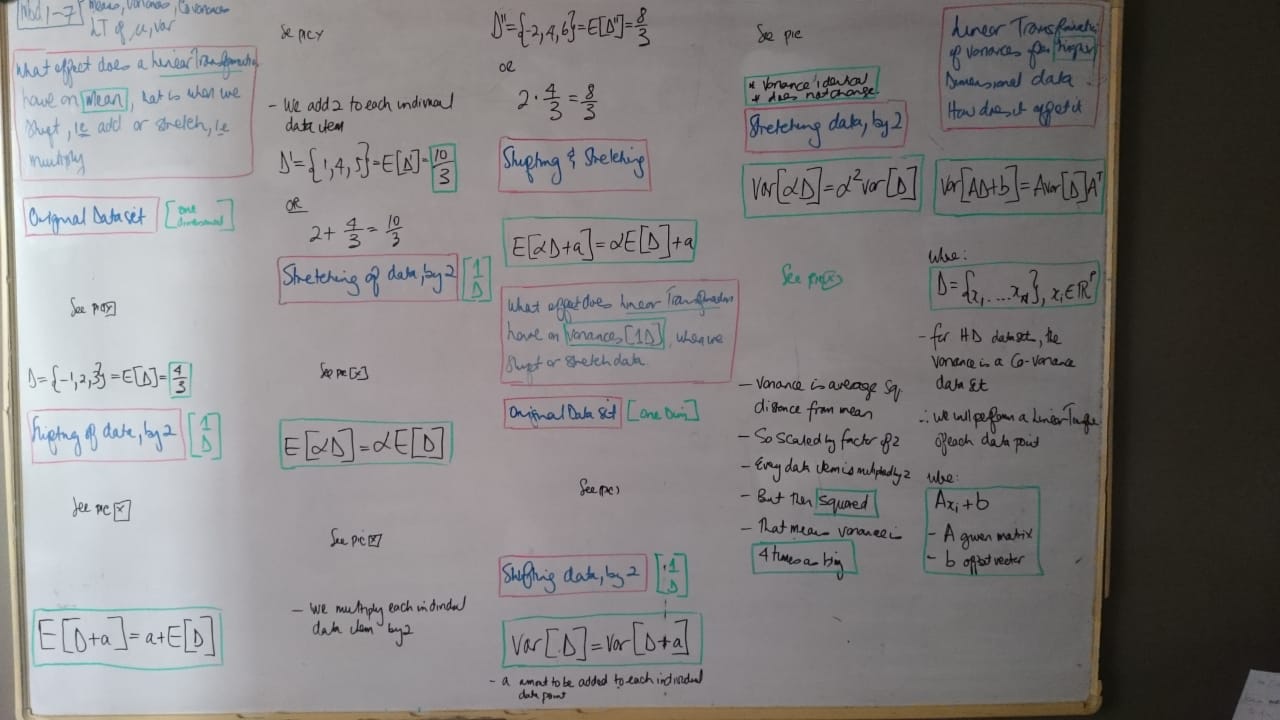 Mod 1-7 Means, Variances, Covariances
LT of μ, var
What effect does a Linear Transformation
have on mean, that is when we
shift, ie add or stretch, ie
multiply
Original Data set [one
dimensional]
See pic
D={-1,2,3}=E[D]=4/3
Shifting of data, by 2 [1
D]
See pic
E[D+a]=a+E[D]
See pic
- We add 2 to each individual
data item
D'={1,4,5}=E[D]=10/3
OR
2+4/3=10/3
Stretching of data, by 2 [1
D]
See pic
E[αD]=αE[D]
See pic
- We multiply each individual
data item by 2
D"={-2,4,6}=E[D"]=8/3
OR
2·4/3=8/3
Shifting & Stretching
E[αD+a]=αE[D]+a
What effect does Linear Transformations
have on variances [1D], when we
shift or stretch data.
Original Data set [one Dim]
See pic
Shifting data, by 2 [1
D]
Var[D]=Var[D+a]
- a amount to be added to each individual
data point
See pic
* Variance identical
* does not change
Stretching data, by 2
Var[αD]=α²var[D]
See pic
- Variance is average sq.
distance from mean
- So scaled by factor of 2
- Every data item is multiplied by 2
- But then squared
- That means variance is
4 times as big
Linear Transformation
of variances for higher
Dimensional data
How does it affect it
Var[AD+b]=Avar[D]Aᵀ
where:
D={x₁,....x_N}, xᵢ∈ℝᴰ
- for HD dataset, the
variance is a Co-variance
data set
∴ we will perform a Linear Transf
of each data point
where:
Axᵢ+b
- A given matrix
- b offset vector